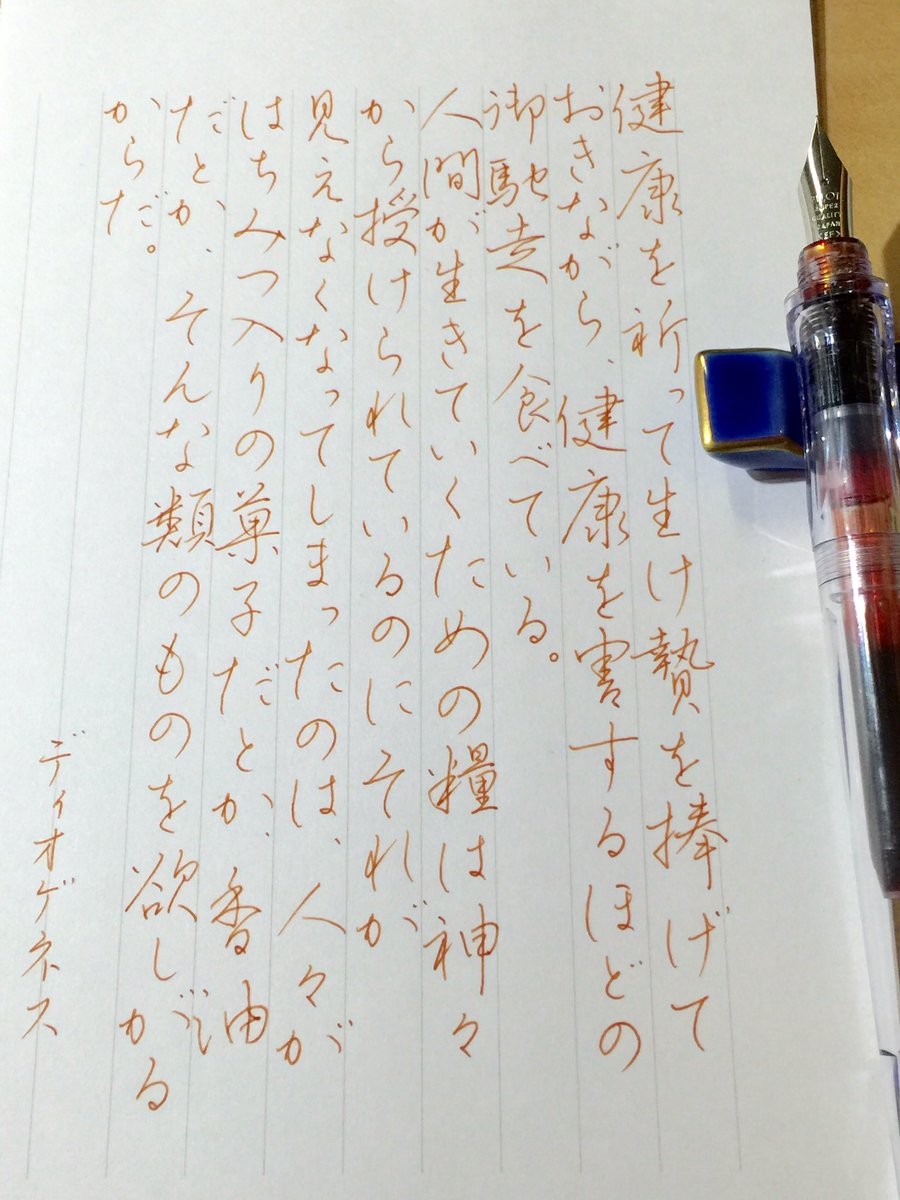 健康を祈って生け贄を捧げて
おきながら、健康を害するほどの
御馳走を食べている。
人間が生きていくための糧は神々
から授けられているのにそれが
見えなくなってしまったのは、人々が
はちみつ入りの菓子だとか、香油
だとか、そんな類のものを欲しがる
からだ。
ディオゲネス
PILOT
SUPER
QUALITY
JAPAN
<EF>